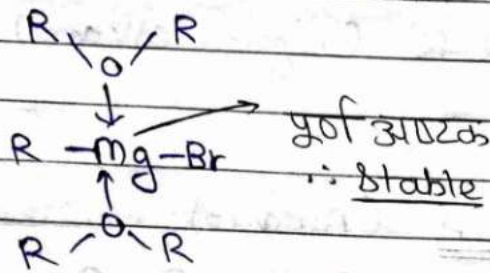 R R
O
R -Mg-Br
पूर्ण अष्टक
∴ Stable
O
R R